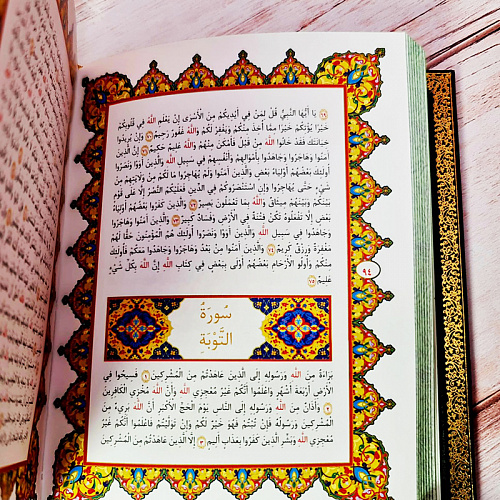 ﴿٦٩﴾ يَا أَيُّهَا النَّبِيُّ قُلْ لِمَنْ فِي أَيْدِيكُمْ مِنَ الْأَسْرَى إِنْ يَعْلَمِ اللَّهُ فِي قُلُوبِكُمْ
خَيْرًا يُؤْتِكُمْ خَيْرًا مِمَّا أُخِذَ مِنْكُمْ وَيَغْفِرْ لَكُمْ وَاللَّهُ غَفُورٌ رَحِيمٌ ﴿٧٠﴾ وَإِنْ يُرِيدُوا
خِيَانَتَكَ فَقَدْ خَانُوا اللَّهَ مِنْ قَبْلُ فَأَمْكَنَ مِنْهُمْ وَاللَّهُ عَلِيمٌ حَكِيمٌ ﴿٧١﴾ إِنَّ الَّذِينَ
آمَنُوا وَهَاجَرُوا وَجَاهَدُوا بِأَمْوَالِهِمْ وَأَنْفُسِهِمْ فِي سَبِيلِ اللَّهِ وَالَّذِينَ آوَوْا وَنَصَرُوا
أُولَئِكَ بَعْضُهُمْ أَوْلِيَاءُ بَعْضٍ وَالَّذِينَ آمَنُوا وَلَمْ يُهَاجِرُوا مَا لَكُمْ مِنْ وَلَايَتِهِمْ مِنْ
شَيْءٍ حَتَّى يُهَاجِرُوا وَإِنِ اسْتَنْصَرُوكُمْ فِي الدِّينِ فَعَلَيْكُمُ النَّصْرُ إِلَّا عَلَى قَوْمٍ
بَيْنَكُمْ وَبَيْنَهُمْ مِيثَاقٌ وَاللَّهُ بِمَا تَعْمَلُونَ بَصِيرٌ ﴿٧٢﴾ وَالَّذِينَ كَفَرُوا بَعْضُهُمْ أَوْلِيَاءُ
بَعْضٍ إِلَّا تَفْعَلُوهُ تَكُنْ فِتْنَةٌ فِي الْأَرْضِ وَفَسَادٌ كَبِيرٌ ﴿٧٣﴾ وَالَّذِينَ آمَنُوا وَهَاجَرُوا
وَجَاهَدُوا فِي سَبِيلِ اللَّهِ وَالَّذِينَ آوَوْا وَنَصَرُوا أُولَئِكَ هُمُ الْمُؤْمِنُونَ حَقًّا لَهُمْ
مَغْفِرَةٌ وَرِزْقٌ كَرِيمٌ ﴿٧٤﴾ وَالَّذِينَ آمَنُوا مِنْ بَعْدُ وَهَاجَرُوا وَجَاهَدُوا مَعَكُمْ فَأُولَئِكَ
مِنْكُمْ وَأُولُو الْأَرْحَامِ بَعْضُهُمْ أَوْلَى بِبَعْضٍ فِي كِتَابِ اللَّهِ إِنَّ اللَّهَ بِكُلِّ شَيْءٍ
عَلِيمٌ ﴿٧٥﴾
٩٤
سُورَةُ
التَّوْبَةِ
بَرَاءَةٌ مِنَ اللَّهِ وَرَسُولِهِ إِلَى الَّذِينَ عَاهَدْتُمْ مِنَ الْمُشْرِكِينَ ﴿١﴾ فَسِيحُوا فِي
الْأَرْضِ أَرْبَعَةَ أَشْهُرٍ وَاعْلَمُوا أَنَّكُمْ غَيْرُ مُعْجِزِي اللَّهِ وَأَنَّ اللَّهَ مُخْزِي الْكَافِرِينَ
﴿٢﴾ وَأَذَانٌ مِنَ اللَّهِ وَرَسُولِهِ إِلَى النَّاسِ يَوْمَ الْحَجِّ الْأَكْبَرِ أَنَّ اللَّهَ بَرِيءٌ مِنَ
الْمُشْرِكِينَ وَرَسُولُهُ فَإِنْ تُبْتُمْ فَهُوَ خَيْرٌ لَكُمْ وَإِنْ تَوَلَّيْتُمْ فَاعْلَمُوا أَنَّكُمْ غَيْرُ
مُعْجِزِي اللَّهِ وَبَشِّرِ الَّذِينَ كَفَرُوا بِعَذَابٍ أَلِيمٍ ﴿٣﴾ إِلَّا الَّذِينَ عَاهَدْتُمْ مِنَ الْمُشْرِكِينَ